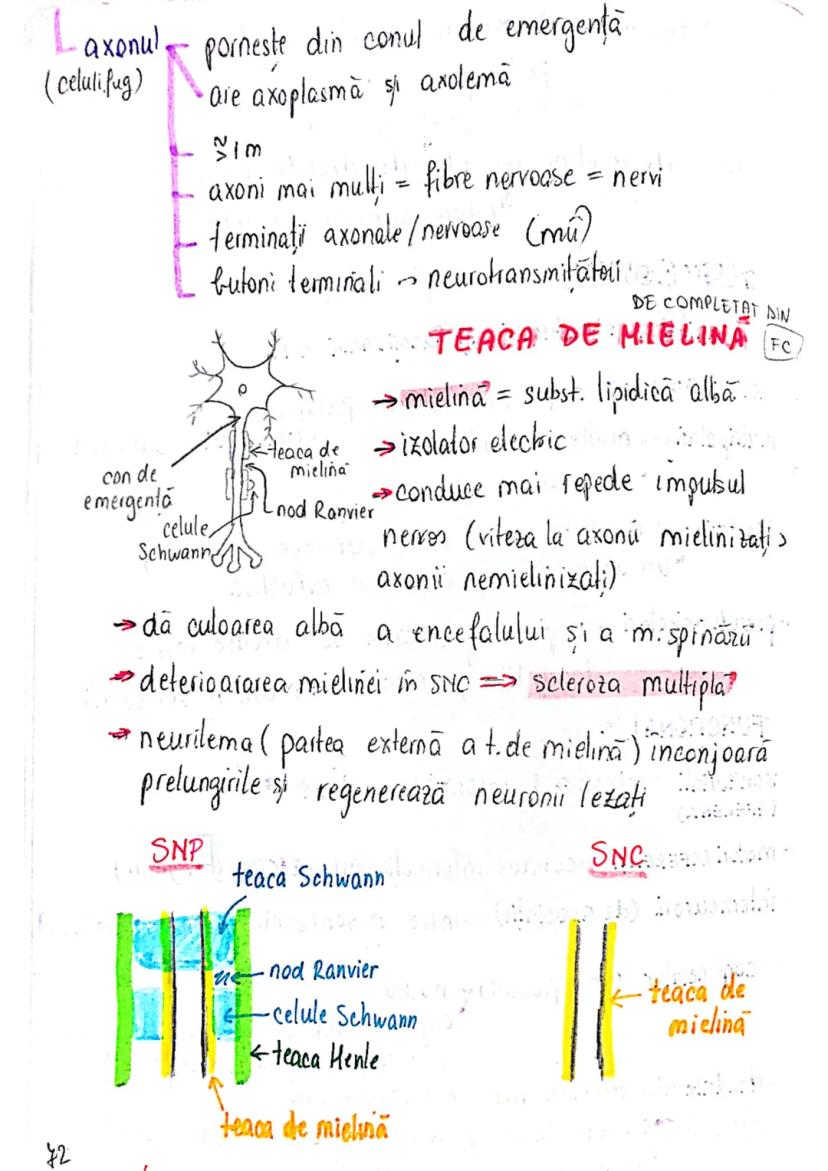 axonul
(celulifug)
pornește din conul de emergență
are axoplasmă și axolemă
≈1m
axoni mai mulți = fibre nervoase = nervi
terminații axonale/nervoase (mîi)
butoni terminali → neurotransmițătorii
DE COMPLETAT DIN
FC
TEACA DE MIELINĂ
→ mielină = subst. lipidică albă
→ izolator electric
→ conduce mai repede impulsul
nervos (viteza la axonii mielinizați >
axonii nemielinizați)
con de
emergență
teaca de
mielină
nod Ranvier
celule
Schwann
→ dă culoarea albă a encefalului și a m. spinării
→ deterioararea mielinei în SNC ⇒ scleroza multiplă
→ neurilema (partea externă a t. de mielină) înconjoară
prelungirile și regenerează neuronii lezați
SNP
teacă Schwann
nod Ranvier
celule Schwann
teaca Henle
teaca de mielină
SNC
teaca de
mielină
72